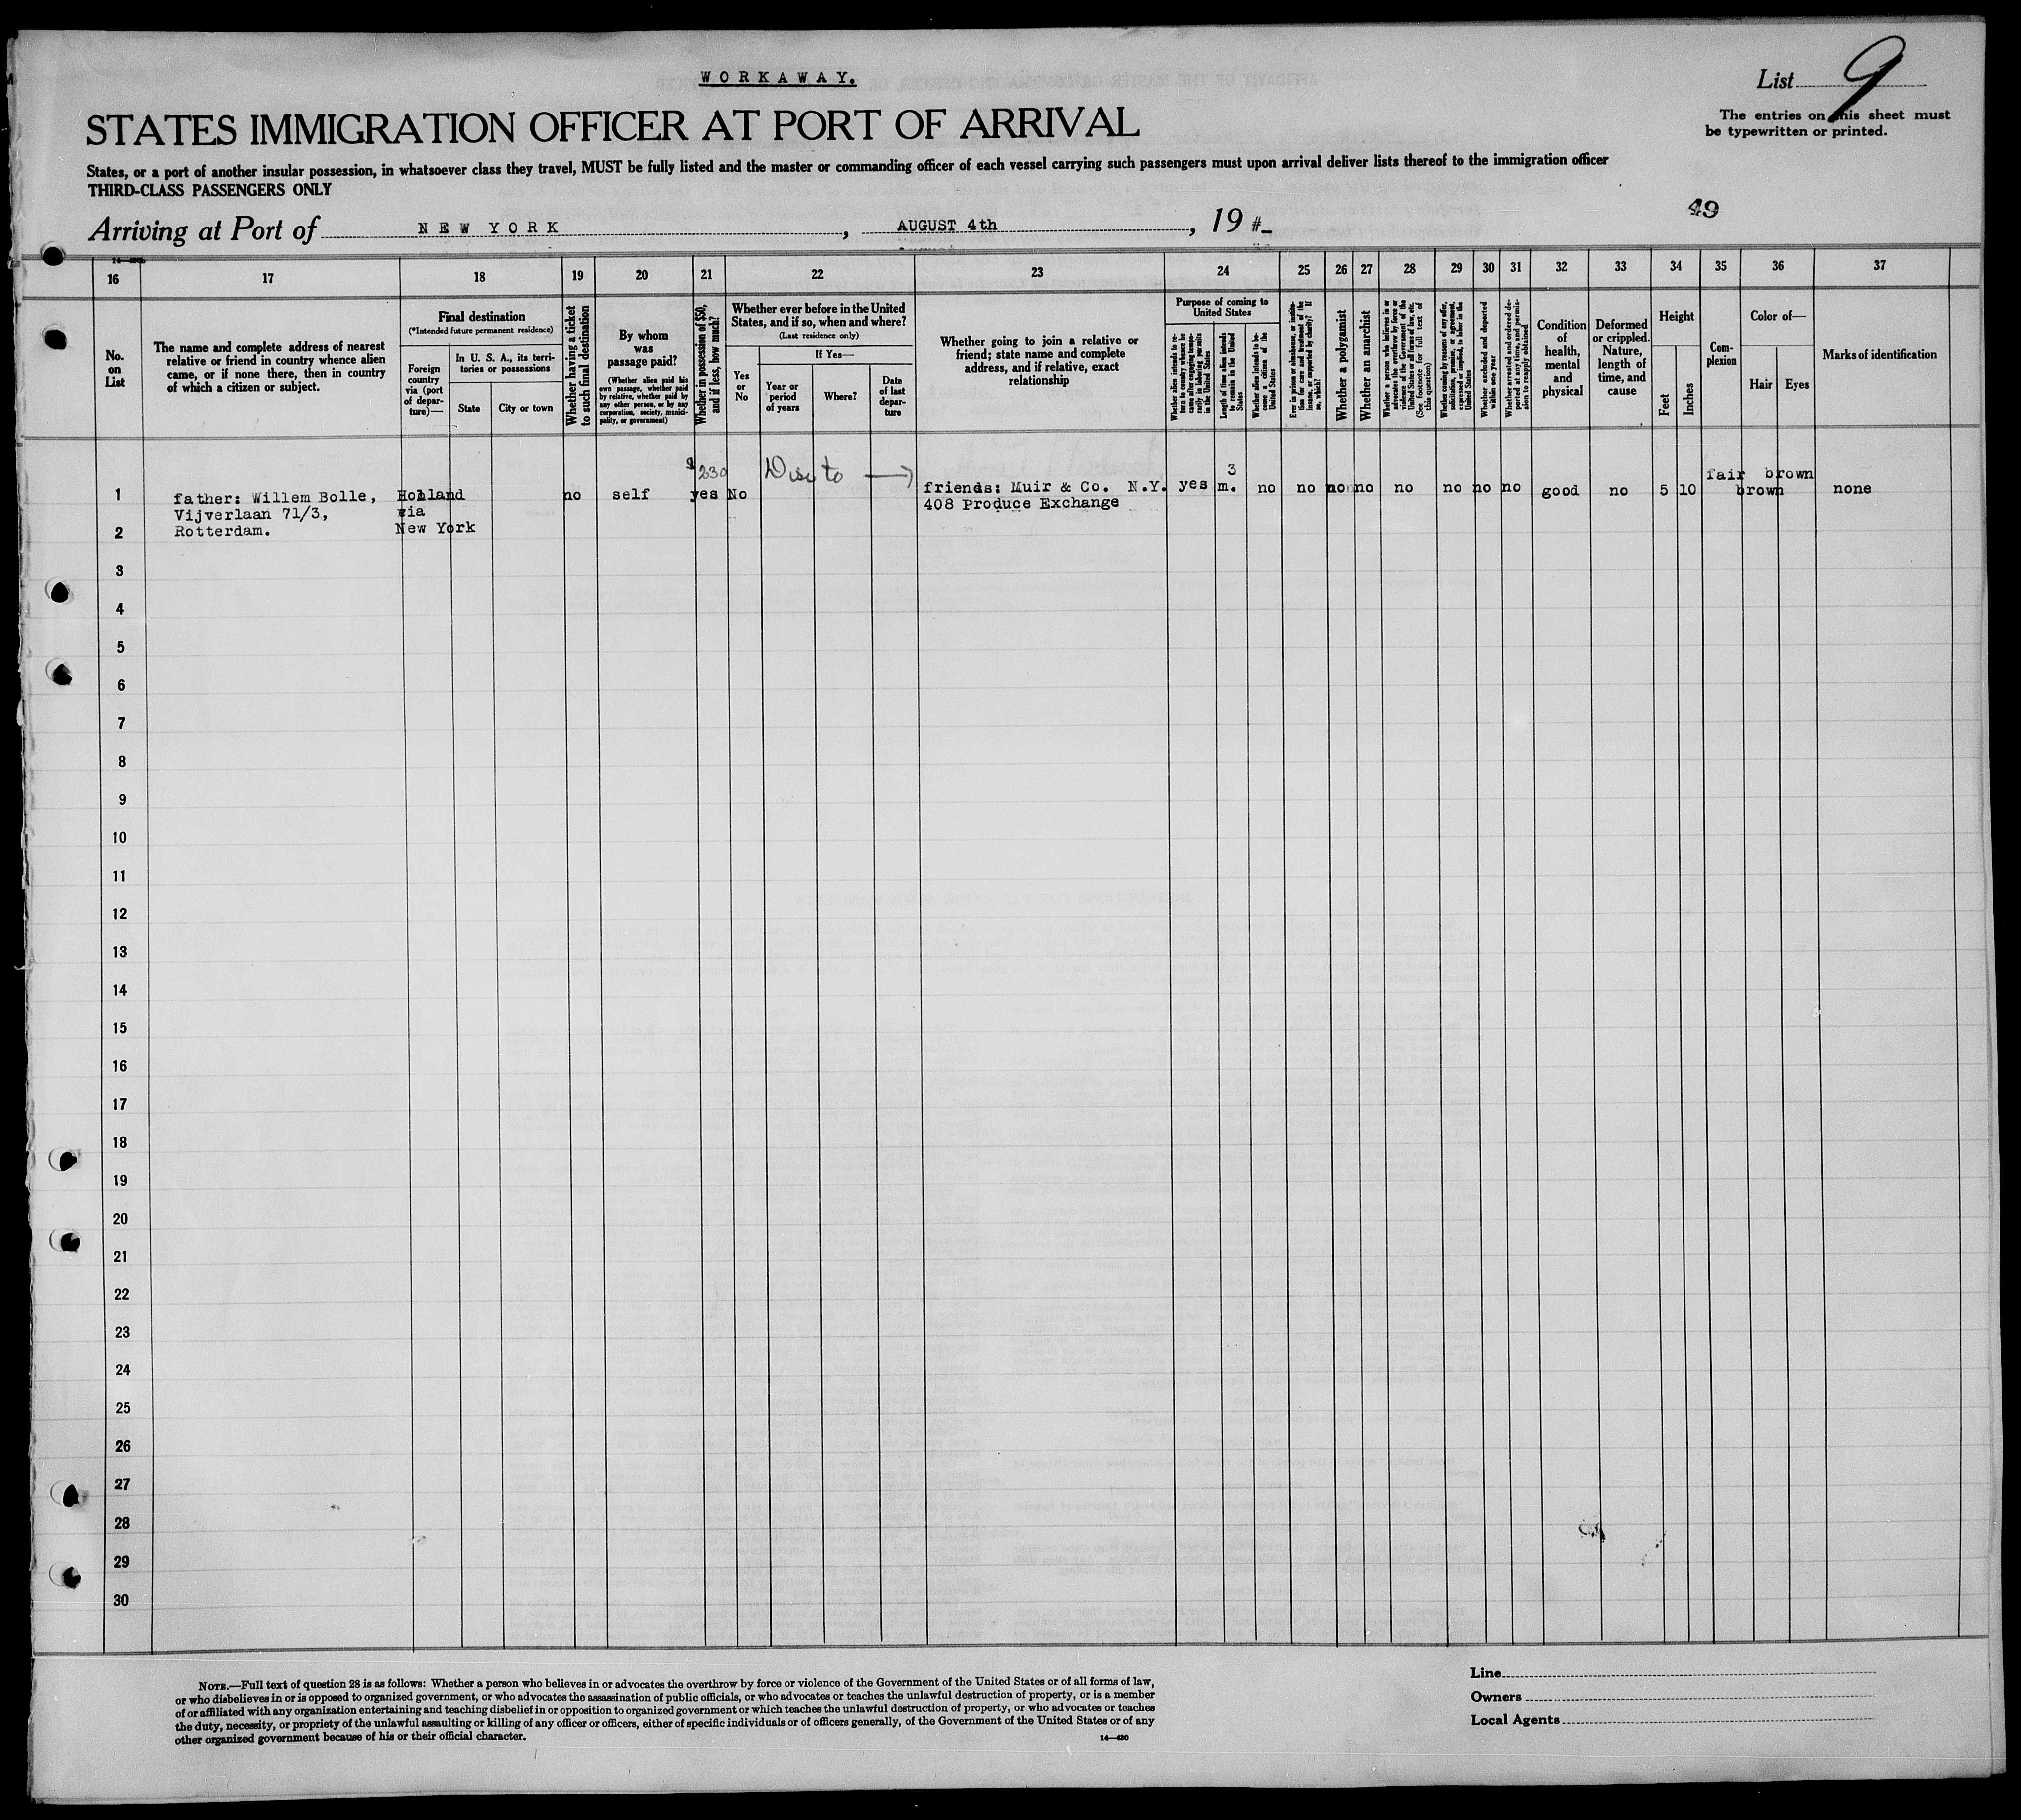 WORKAWAY.
List 9
STATES IMMIGRATION OFFICER AT PORT OF ARRIVAL
The entries on this sheet must
be typewritten or printed.
States, or a port of another insular possession, in whatsoever class they travel, MUST be fully listed and the master or commanding officer of each vessel carrying such passengers must upon arrival deliver lists thereof to the immigration officer
THIRD-CLASS PASSENGERS ONLY
49
Arriving at Port of NEW YORK, AUGUST 4th, 19
16 17 18 19 20 21 22 23 24 25 26 27 28 29 30 31 32 33 34 35 36 37
No.
on
List
The name and complete address of nearest
relative or friend in country whence alien
came, or if none there, then in country
of which a citizen or subject.
Final destination
(*Intended future permanent residence)
Foreign
country
via (port
of depar-
ture)—
In U. S. A., its terri-
tories or possessions
State
City or town
Whether having a ticket
to such final destination
By whom
was
passage paid?
(Whether alien paid his
own passage, whether paid
by relative, whether paid by
any other person, or by any
corporation, society, munici-
pality, or government)
Whether in possession of $50,
and if less, how much?
Whether ever before in the United
States, and if so, when and where?
(Last residence only)
Yes
or
No
If Yes—
Year or
period
of years
Where?
Date
of last
depar-
ture
Whether going to join a relative or
friend; state name and complete
address, and if relative, exact
relationship
Purpose of coming to
United States
Whether alien intends to re-
turn to country whence he
came after engaging tempo-
rarily in laboring pursuits
in the United States
Length of time alien intends
to remain in the United
States
Whether alien intends to be-
come a citizen of the
United States
Ever in prison or almshouse, or institu-
tion for care and treatment of the
insane, or supported by charity? If
so, which?
Whether a polygamist
Whether an anarchist
Whether a person who believes in or
advocates the overthrow by force or
violence of the Government of the
United States or all forms of law, etc.
(See footnote for full text of
this question)
Whether coming by reason of any offer,
solicitation, promise, or agreement,
expressed or implied, to labor in the
United States
Whether excluded and deported
within one year
Whether arrested and ordered de-
ported at any time, and permis-
sion to reapply obtained
Condition
of
health,
mental
and
physical
Deformed
or crippled.
Nature,
length of
time, and
cause
Height
Feet
Inches
Com-
plexion
Color of—
Hair
Eyes
Marks of identification
$230
3
fair brown
1 father: Willem Bolle, Holland no self yes No friends: Muir & Co. N.Y. yes m. no no no no no no no no good no 5 10 brown none
Vijverlaan 71/3, via 408 Produce Exchange
2 Rotterdam. New York
3
4
5
6
7
8
9
10
11
12
13
14
15
16
17
18
19
20
21
22
23
24
25
26
27
28
29
30
NOTE.—Full text of question 28 is as follows: Whether a person who believes in or advocates the overthrow by force or violence of the Government of the United States or of all forms of law,
or who disbelieves in or is opposed to organized government, or who advocates the assassination of public officials, or who advocates or teaches the unlawful destruction of property, or is a member
of or affiliated with any organization entertaining and teaching disbelief in or opposition to organized government or which teaches the unlawful destruction of property, or who advocates or teaches
the duty, necessity, or propriety of the unlawful assaulting or killing of any officer or officers, either of specific individuals or of officers generally, of the Government of the United States or of any
other organized government because of his or their official character.
14—430
Line
Owners
Local Agents